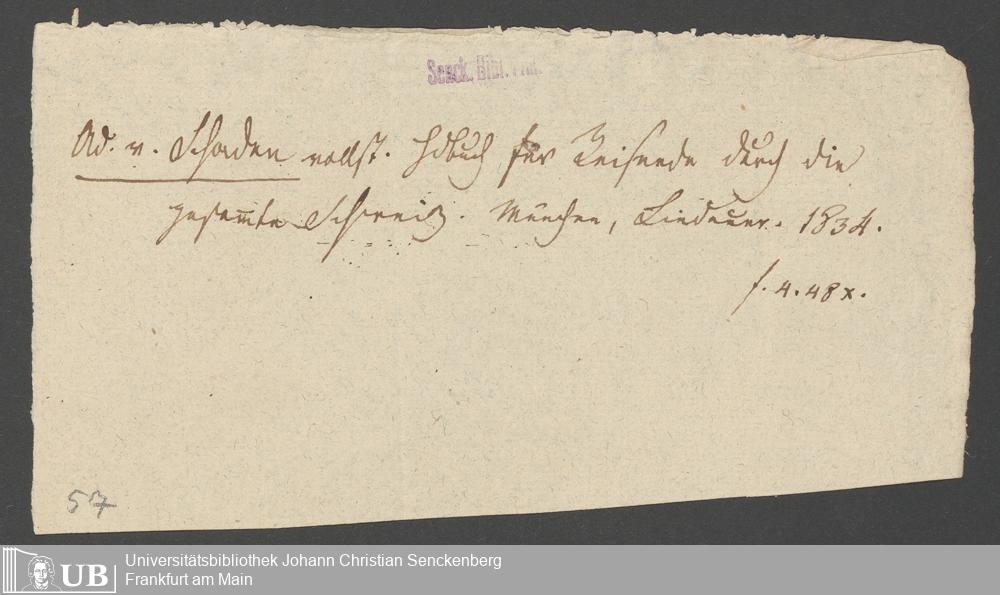 Senck. Bibl. Ffm.
Ad. v. Schaden vollst. Hdbuch für Reisende durch die
gesammte Schweitz. München, Lindauer. 1834.
f. 4. 48 x.
57
UB
Universitätsbibliothek Johann Christian Senckenberg
Frankfurt am Main